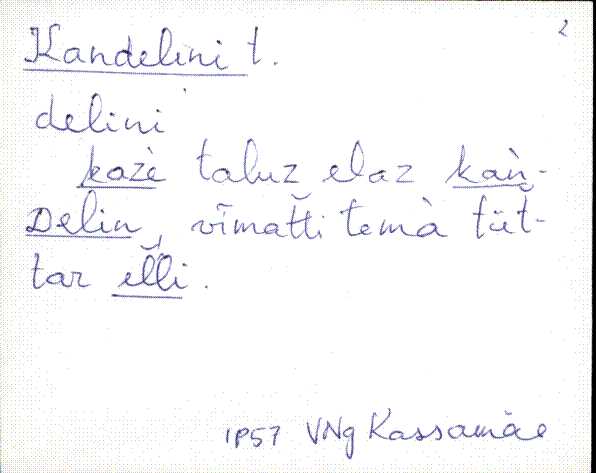 2
Kandelini t.
delini
kazè taluz elaz kàǹ-
Delin, vīmatti temà tüt-
tar elli.
IP57 VNg Kassamäe